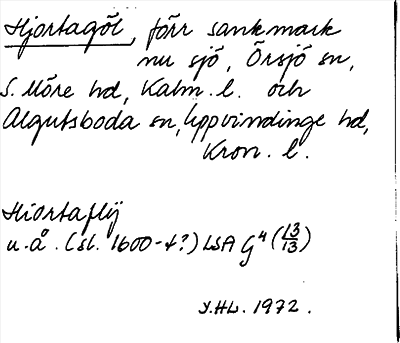 Hjortagöl, förr sankmark
nu sjö, Örsjö sn,
S. Möre hd, Kalm. l. och
Algutsboda sn, Uppvidinge hd,
Kron. l.
Hiortaflÿ
u.å. (sl. 1600-t?) LSA G4 (13/13)
Y.HL. 1972.